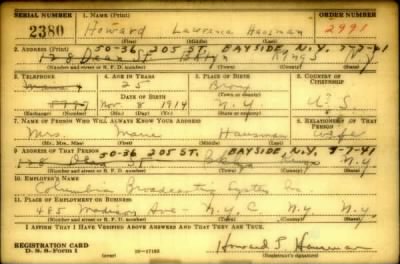 SERIAL NUMBER 1. NAME (Print) ORDER NUMBER
2380 Howard Lawrence Hausman 2991
(First) (Middle) (Last)
50-36 205 ST. BAYSIDE N.Y. 3-7-41
2. ADDRESS (Print)
128 Dean St. Bklyn Kings N.Y.
(Number and street or R. F. D. number) (Town) (County) (State)
3. TELEPHONE 4. AGE IN YEARS 5. PLACE OF BIRTH 6. COUNTRY OF CITIZENSHIP
Main 4 25 Bronx
DATE OF BIRTH
Nov. 8 1914 N.Y. U.S.
(Exchange) (Number) (Mo.) (Day) (Yr.) (State or country)
7. NAME OF PERSON WHO WILL ALWAYS KNOW YOUR ADDRESS 8. RELATIONSHIP OF THAT PERSON
Mrs. Marie Hausman wife
(Mr., Mrs., Miss) (First) (Middle) (Last)
50-36 205 ST. BAYSIDE N.Y. 3-7-41
9. ADDRESS OF THAT PERSON
128 Dean St. Bklyn Kings N.Y.
(Number and street or R. F. D. number) (Town) (County) (State)
10. EMPLOYER'S NAME
Columbia Broadcasting System Inc.
11. PLACE OF EMPLOYMENT OR BUSINESS
485 Madison Ave - N.Y.C N.Y. N.Y.
(Number and street or R. F. D. number) (Town) (County) (State)
I AFFIRM THAT I HAVE VERIFIED ABOVE ANSWERS AND THAT THEY ARE TRUE.
REGISTRATION CARD
D. S. S. Form 1 (over) 16-17105 Howard L. Hausman
(Registrant's signature)